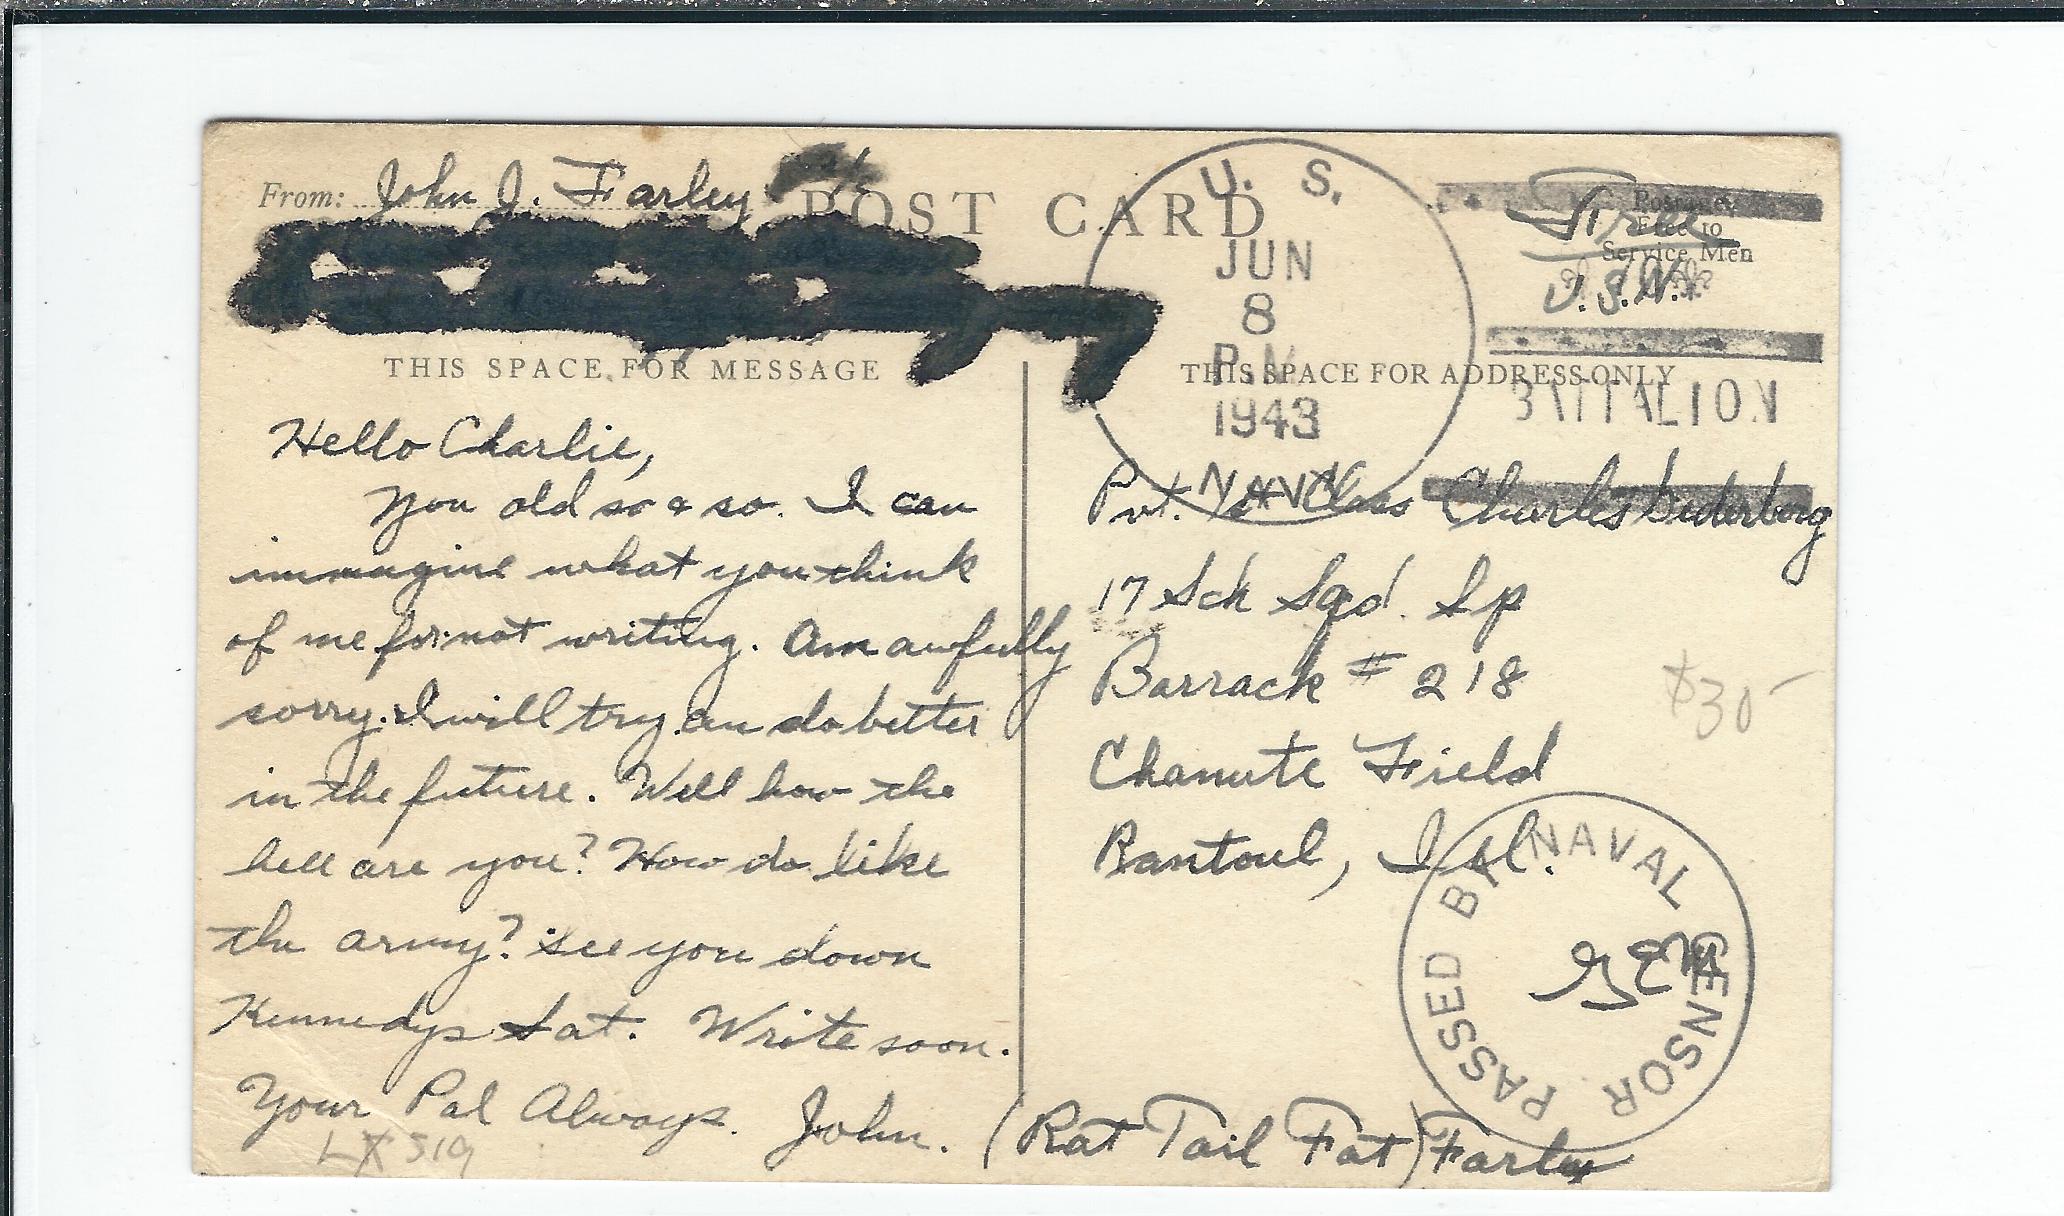 From: John J. Farley
POST CARD
U. S.
JUN
8
P.M.
1943
NAVY
Postage
Free to
Service Men
Free
U.S.N.
BATTALION
THIS SPACE FOR MESSAGE
THIS SPACE FOR ADDRESS ONLY
Hello Charlie,
You old so & so. I can
immagine what you think
of me for not writing. Am awfully
sorry. I will try an do better
in the future. Well how the
hell are you? How do like
the army? See you down
Kennedys Sat. Write soon.
Your Pal Always. John. (Rat Tail Fat) Farley
LX 519
Pvt. 1st Class Charles Sederberg
17 Sch Sqd. Sp
Barrack # 218
Chanute Field
Rantoul, Ill.
$30-
PASSED BY NAVAL CENSOR